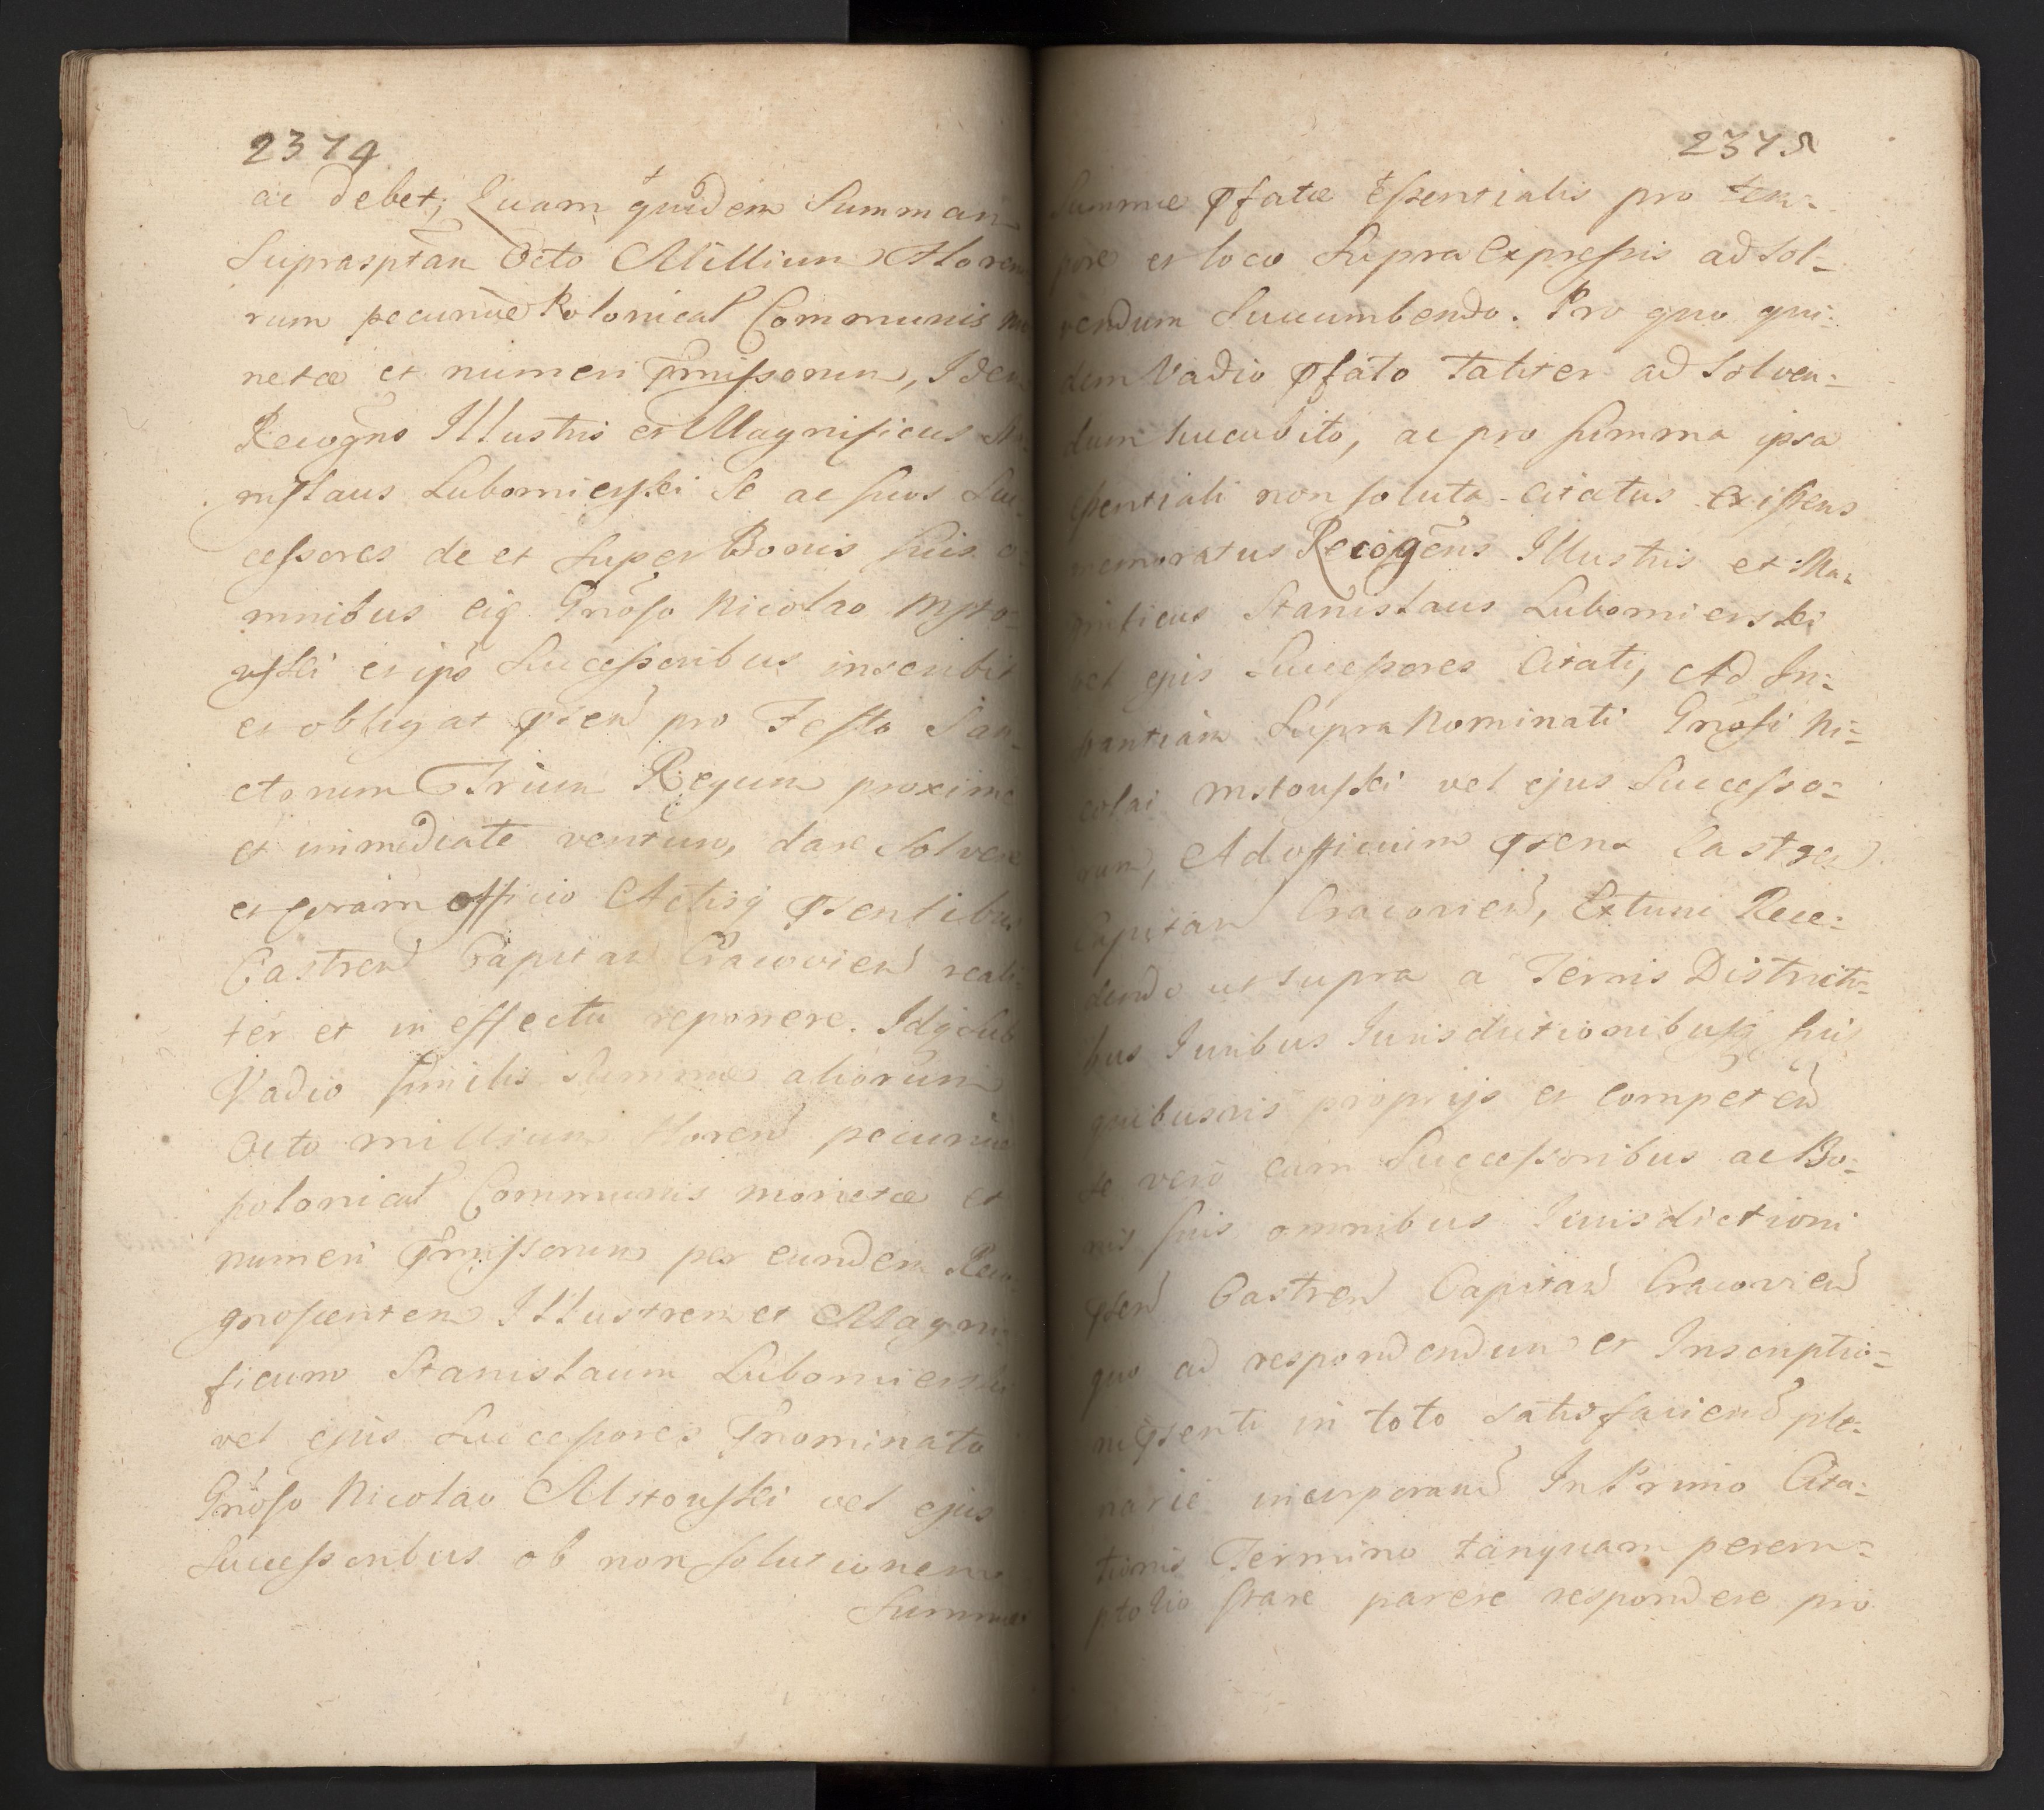 2374
ac debet; Quam quidem Summam
Suprasptam Octo Millium Floren
rum pecuniæ Polonical Communis mo
netæ et numeri pmissorum, Idem
Recogns Illustris et Magnificus Sta
nislaus Lubomierski Se ac suos Suc
cessores de et super Bonis suis o=
mnibus eiq Gnõso Nicolao Msto=
wski et ips Successoribus inscribit
et obligat psen pro Festo San=
ctorum Trium Regum proxime
et immediate venturo, dare solvere
et coram officio Actisq psentibus
Castren Capitan Cracovien reali=
ter et in effectu reponere. Idq sub
Vadio similis summæ aliorum
Octo millium Floren pecuniæ
polonical Communis monetæ et
numeri pmissorum per eundem Reco=
gnoscentem Illustrem et Magni=
ficum Stanislaum Lubomierski
vel ejus Successores pnominato
Gnõso Nicolao Mstowski vel ejus
Successoribus ob non solutionem
Summæ
2375
Summæ pfatæ Essentialis pro tem=
pore et loco supra Expressis ad sol=
vendum succumbendo. Pro quo qui=
dem Vadio pfato taliter ad solven=
dum succubito, ac pro summa ipsa
essentiali non soluta citatus existens
memoratus Recogẽns Illustris et Ma=
gnificus Stanislaus Lubomierski
vel ejus Successores Citati, Ad In=
stantiam Supra Nominati Gnõsi Ni=
colai Mstowski vel ejus Successo=
rum, Ad officium psens Castren
Capitan Cracovien, Extunc Rece=
dendo ut supra a Terris Districti=
bus Iuribus Iurisdictionibusq suis
quibusvis proprijs et competen
se vero cum Successoribus ac Bo=
nis suis omnibus Iurisdictioni
psen Castren Capitan Cracovien
quo ad respondendum et Inscriptio=
ni psenti in toto satisfaciend ple=
narie incorporand In Primo Cita=
tionis Termino tanquam perem=
ptorio stare parere respondere pro